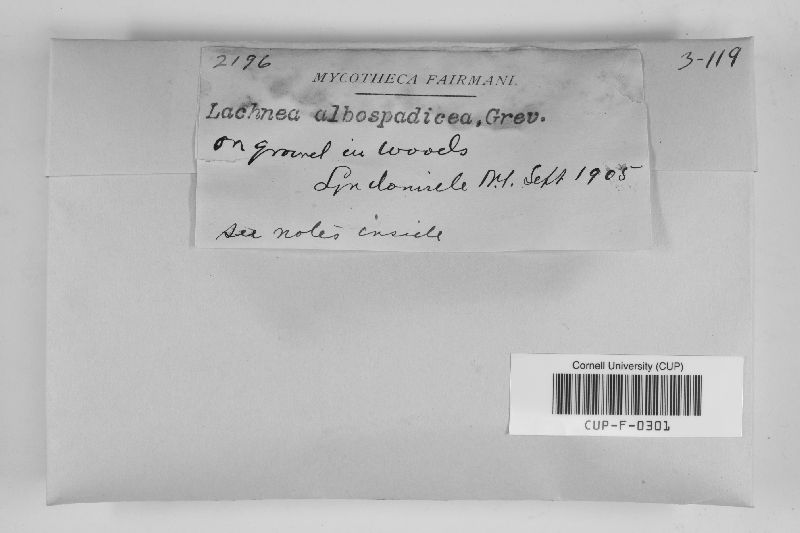 2196
3-119
MYCOTHECA FAIRMANI.
Lachnea albospadicea, Grev.
on ground in woods
Lyndonville N.Y. Sept 1905
see notes inside
Cornell University (CUP)
CUP-F-0301